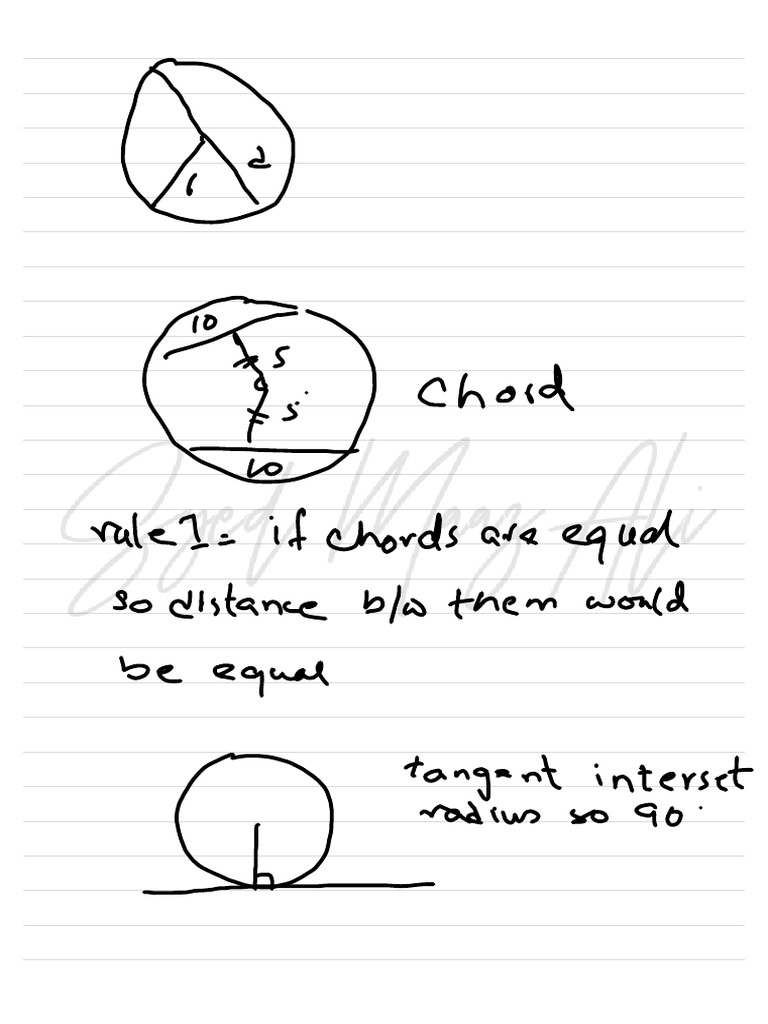 d
r
10
5
5
Chord
10
Syed Maaz Ali
rule1= if chords are equal
so distance b/w them would
be equal
tangent interset
radius so 90°